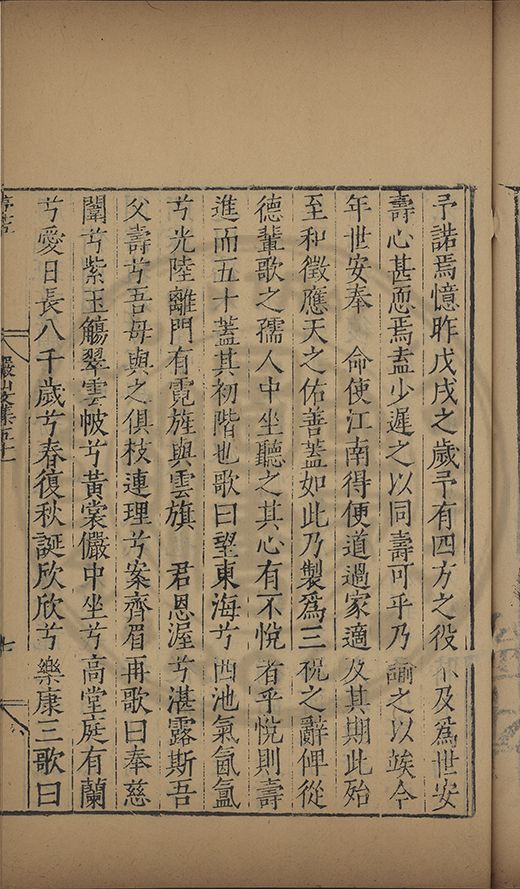 予諾焉憶昨戊戌之歲予有四方之役不及為世安
壽心甚恧焉盍少遲之以同壽可乎乃諭之以竢今
年世安奉　命使江南得便道過家適及其期此殆
至和徵應天之佑善蓋如此乃製為三祝之辭俾從
德輩歌之孺人中坐聽之其心有不悅者乎悅則壽
進而五十蓋其初階也歌曰望東海兮四池氣氤氳
兮光陸離門有霓旌與雲旗　君恩渥兮湛露斯吾
父壽兮吾母與之俱枝連理兮案齊眉再歌曰奉慈
闈兮紫玉觴翠雲帔兮黃裳儼中坐兮高堂庭有蘭
兮愛日長八千歲兮春復秋誕欣欣兮樂康三歌曰
儼山文集五十一
七